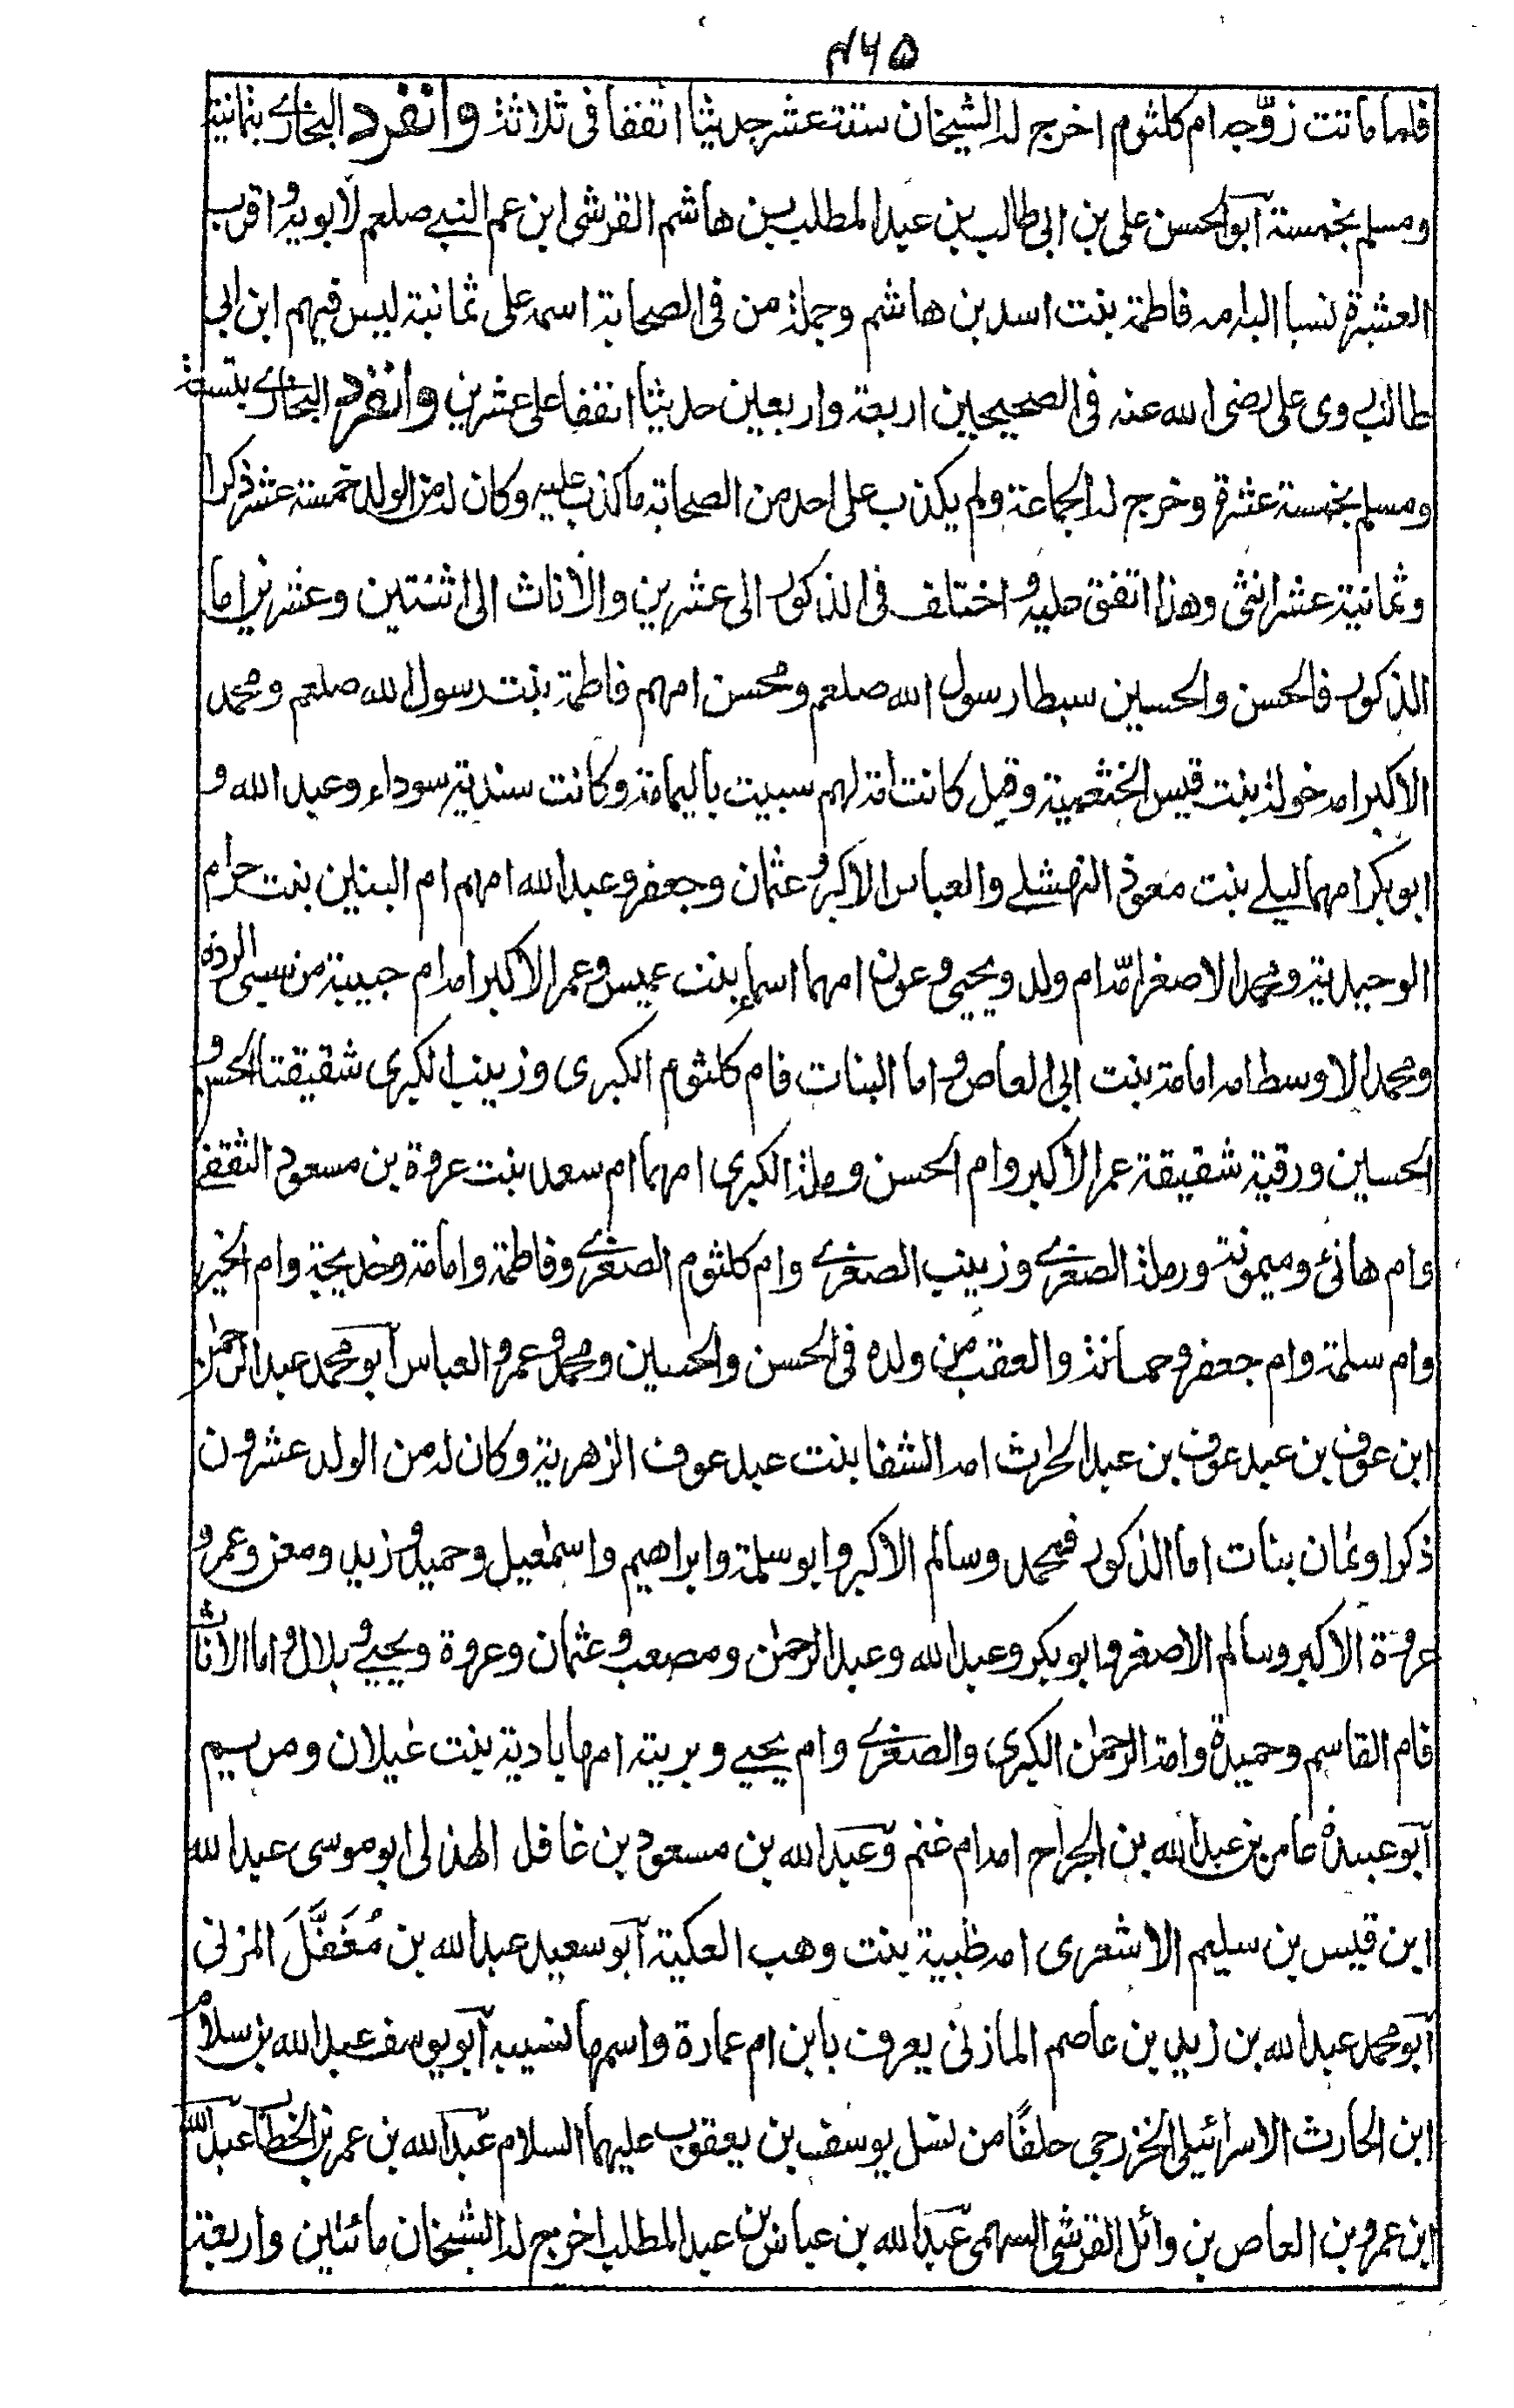 ۴۶۵
فلما ماتت زوّجه ام كلثوم اخرج له الشيخان ستة عشر حديثا اتفقا فى ثلاثة وانفرد البخارى بثمانية
ومسلم بخمسة ابو الحسن على بن ابى طالب بن عبد المطلب بن هاشم القرشى ابن عم النبى صلعم لابويه واقرب
العشرة نسبا اليه امه فاطمة بنت اسد بن هاشم وجملة من فى الصحابة اسمه على ثمانية ليس فيهم ابن ابى
طالب روى على رضى الله عنه فى الصحيحين اربعة واربعين حديثا اتفقا على عشرين وانفرد البخارى بتسعة
ومسلم بخمسة عشرة وخرج له الجماعة ولم يكذب على احد من الصحابة ما كذب عليه وكان له من الولد خمسة عشر ذكرا
وثمانية عشر انثى وهذا اتفق عليه و اختلف فى الذكور الى عشرين والاناث الى اثنتين وعشرين اما
الذكور فالحسن والحسين سبطا رسول الله صلعم ومحسن امهم فاطمة بنت رسول الله صلعم ومحمد
الاكبر امه خولة بنت قيس الخثعمية وقيل كانت امة لهم سبيت باليمامة وكانت سندية سوداء وعبد الله و
ابو بكر امهما ليلى بنت معوذ النهشلى والعباس الاكبر وعثمان وجعفر وعبد الله امهم ام البنين بنت حرام
الوحيدية ومحمد الاصغر امّه ام ولد ويحيى وعون امهما اسماء بنت عميس وعمر الاكبر امه ام حبيبة من سبى الردة
ومحمد الاوسط امه امامة بنت ابى العاص و اما البنات فام كلثوم الكبرى وزينب الكبرى شقيقتا الحسن و
الحسين ورقية شقيقة عمر الاكبر وام الحسن ورملة الكبرى امهما ام سعد بنت عروة بن مسعود الثقفى
وام هانئ وميمونة ورملة الصغرى وزينب الصغرى وام كلثوم الصغرى وفاطمة وامامة وخديجة وام الخير
وام سلمة وام جعفر وحمانة والعقب من ولده فى الحسن والحسين ومحمد وعمر والعباس ابو محمد عبد الرحمٰن
ابن عوف بن عبد عوف بن عبد الحارث امه الشفا بنت عبد عوف الزهرية وكان له من الولد عشرون
ذكرا وثمان بنات اما الذكور فمحمد وسالم الاكبر وابو سلمة وابراهيم واسمٰعيل وحميد وزيد ومعن وعمر و
عروة الاكبر وسالم الاصغر وابو بكر وعبد الله وعبد الرحمٰن ومصعب وعثمان وعروة ويحيى وبلال و اما الاناث
فام القاسم وحميدة وامة الرحمٰن الكبرى والصغرى وام يحيى وبرية امها بادية بنت غيلان ومريم
ابو عبيدة عامر بن عبد الله بن الجراح امه ام غنم وعبد الله بن مسعود بن غافل الهذلى ابو موسى عبد الله
ابن قيس بن سليم الاشعرى امه ظبية بنت وهب العكية ابو سعيد عبد الله بن مُغَفَّلَ المزنى
ابو محمد عبد الله بن زيد بن عاصم المازنى يعرف بابن ام عمارة واسمها نسيبه ابو يوسف عبد الله بن سلام
ابن الحارث الاسرائيلى الخزرجى حلفًا من نسل يوسف بن يعقوب عليهما السلام عبد الله بن عمر بن الخطاب عبد الله
ابن عمرو بن العاص بن وائل القرشى السهمى عبد الله بن عباس بن عبد المطلب اخرج له الشيخان مائتين واربعة